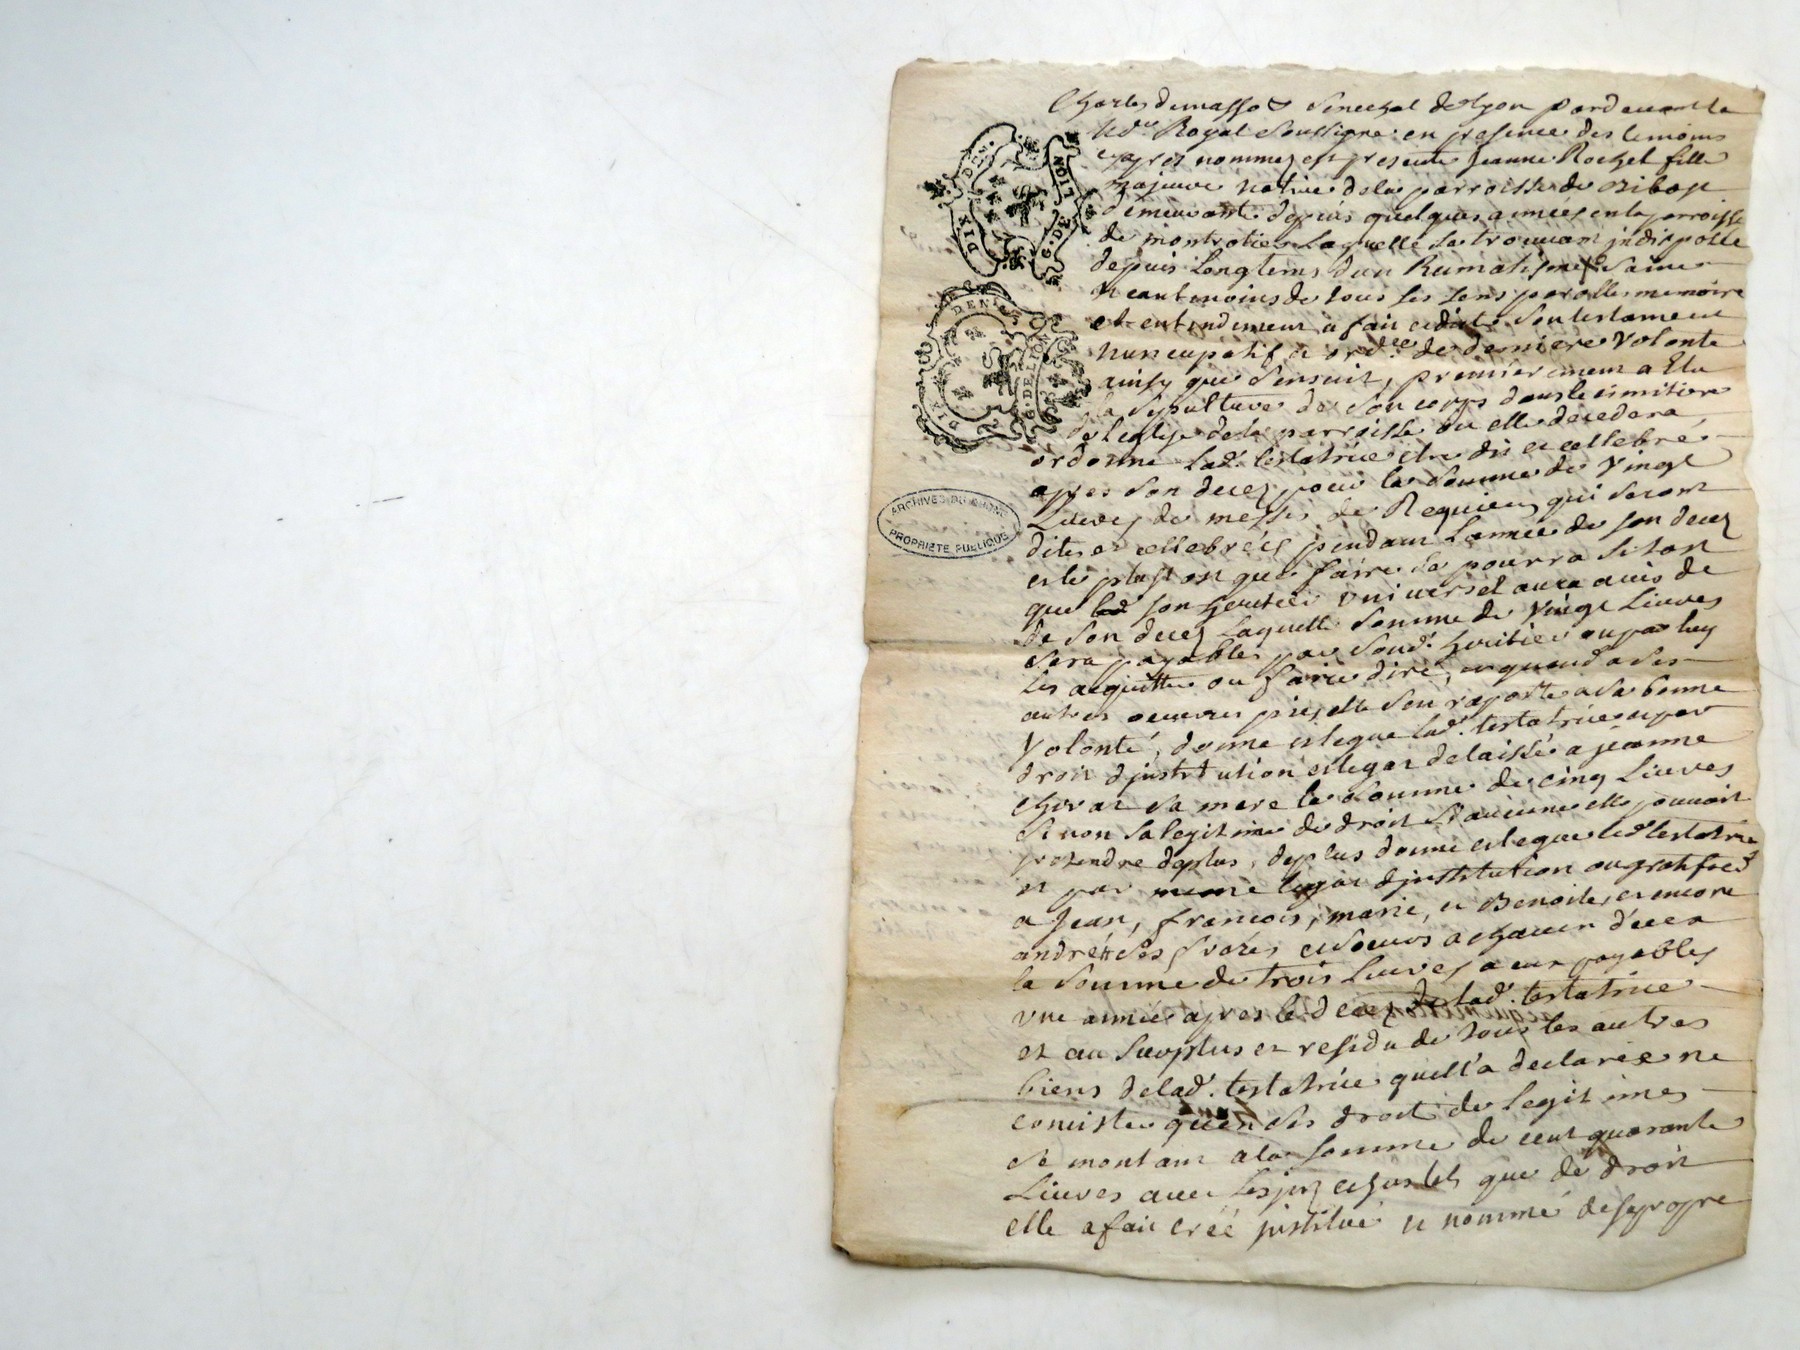 Charles demasso Senechal de Lyon pardevant le
No.re Royal Soussigne en presence des temoins
cyapres nommez est presente Jeanne Rochel fille
majeure native de la parroisse de
demeurante depuis quelques années en la parroisse
de montrotier Laquelle se trouvant indisposée
depuis Longtems dun Rumatisme saine
Neantmoins de tous ses sens parolles memoire
et entendement a fait et dicté Son testament
nuncupatif et ord.ce de derniere Volonte
ainsy que Sensuit, premierement a Elu
la Sepulture de Son corps dans le cimitiere
de leglise de la parroisse ou elle decedera
ordonne lad. testatrice etre dit et cellebré
apres son decez pour la Somme de Vingt
Livres de messes de Requiem qui seront
dites et cellebrées pendant Lannée de son decez
et le plustost que faire se pourra si tost
que son heritier Universel aura avis de
de Son decez Laquelle Somme de Vingt Livres
Sera payable par Sond. heritier ou par luy
les acquitter ou faire dire, et quand a Ses
autres oeuvres pies elle Sen raporte a Sa bonne
Volonté, donne et legue lad. testatrice et par
droit djnstitution et legat delaissé a jeanne
chovat Sa mere la Somme de cinq Livres
Si non Sa legitime de droit Si aucune elle pouvoit
pretendre deplus, deplus donne et legue lad. testatrice
et par meme legat djnstitution
a Jean, francois, marie, et Benoite, et encore
andré Ses freres et Soeurs a chacun deux
la Somme de trois Livres a eux payables
une année apres le decez de lad. testatrice
et au Surplus et residu de tous les autres
biens de lad. testatrice quell'a declarée ne
consister quen Ses droit de legitimes
Se montant a la Somme de cent quarante
Livres avec que de droit
elle a fait créé jnstitué et nommé de sa propre
DIX DEN.
G. DE LION
DIX DENIERS
G. DE LION
ARCHIVES DU RHONE
PROPRIETE PUBLIQUE